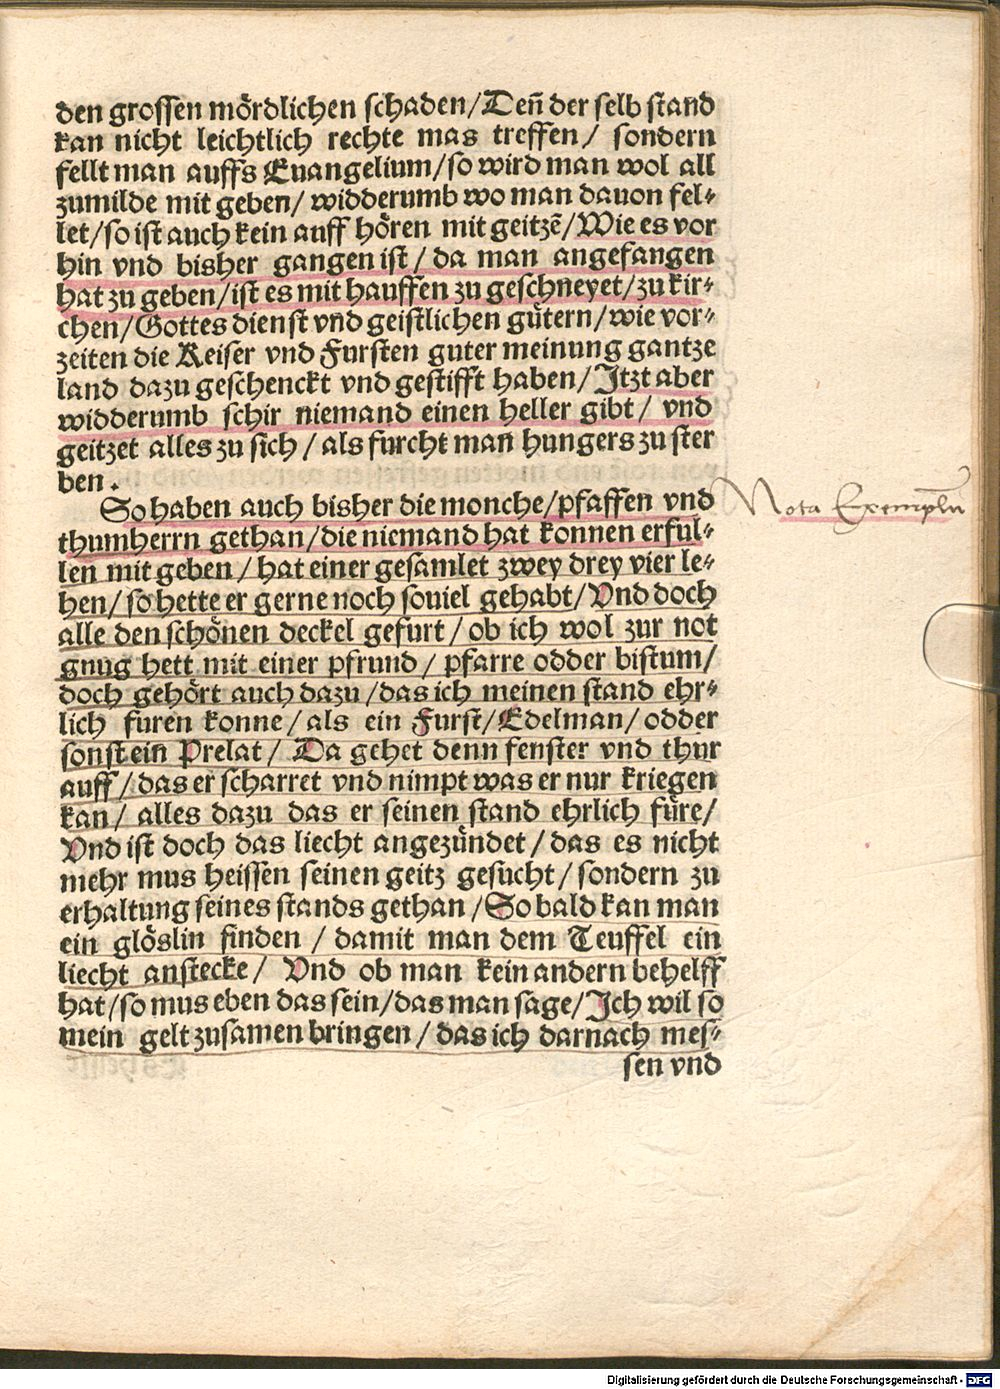 den grossen mördlichen schaden/Deñ der selb stand
kan nicht leichtlich rechte mas treffen/ sondern
fellt man auffs Euangelium/so wird man wol all
zumilde mit geben/ widderumb wo man dauon fel-
let/so ist auch kein auff hören mit geitzẽ/Wie es vor
hin vnd bisher gangen ist/da man angefangen
hat zu geben/ist es mit hauffen zu geschneyet/zu kir-
chen/Gottes dienst vnd geistlichen gütern/wie vor-
zeiten die Keiser vnd Fursten guter meinung gantze
land dazu geschenckt vnd gestifft haben/Itzt aber
widderumb schir niemand einen heller gibt/ vnd
geitzet alles zu sich/als furcht man hungers zu ster
ben.
So haben auch bisher die monche/pfaffen vnd
Nota Exemplũ
thumherrn gethan/die niemand hat konnen erful-
len mit geben/hat einer gesamlet zwey drey vier le-
hen/so hette er gerne noch souiel gehabt/Vnd doch
alle den schönen deckel gefurt/ob ich wol zur not
gnug hett mit einer pfrund/pfarre odder bistum/
doch gehört auch dazu/das ich meinen stand ehr-
lich furen konne/als ein Furst/Edelman/odder
sonst ein Prelat/ Da gehet denn fenster vnd thur
auff/das er scharret vnd nimpt was er nur kriegen
kan/ alles dazu das er seinen stand ehrlich füre/
Vnd ist doch das liecht angezündet/das es nicht
mehr mus heissen seinen geitz gesucht/sondern zu
erhaltung seines stands gethan/So bald kan man
ein glöslin finden/damit man dem Teuffel ein
liecht anstecke/ Vnd ob man kein andern behelff
hat/so mus eben das sein/das man sage/Ich wil so
mein gelt zusamen bringen/das ich darnach mes-
sen vnd
Digitalisierung gefördert durch die Deutsche Forschungsgemeinschaft - DFG